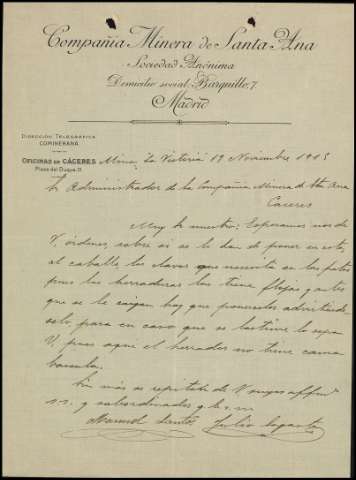 Compañia Minera de Santa Ana
Sociedad Anónima
Domicilio social: Barquillo, 7
Madrid
DIRECCIÓN TELEGRÁFICA
COMINERANA
OFICINAS DE CÁCERES
Plaza del Duque, 11
Mina, La Victoria 19 Noviembre 1915
Sr Administrador de la Compañia Minera de Sta Ana
Cáceres
Muy Sr nuestro: Esperamos nos de
V, órdenes, sobre si se le dan de poner en este,
al caballo los clavos que necesita en las patas
pues las herraduras las tiene flojas y antes
que se le caigan hay que ponerselos advirtiendo
esto para en caso que se lastime lo sepa
V, pues aqui el herrador no tiene
Sin más se repiten de V suyos affmos
s.s. y subordinados q.b.s.m
Manuel Santos Julio